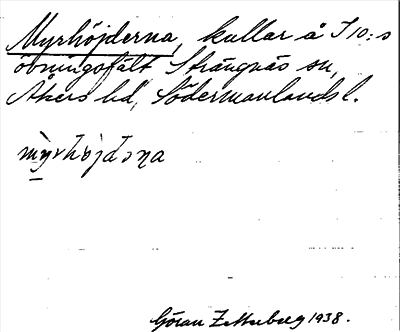 Myrhöjderna, kullar å I 10:s
övningsfält Strängnäs sn,
Åkers hd, Södermanlands l.
myrhöjdəɳa
Göran Zetterberg 1938.